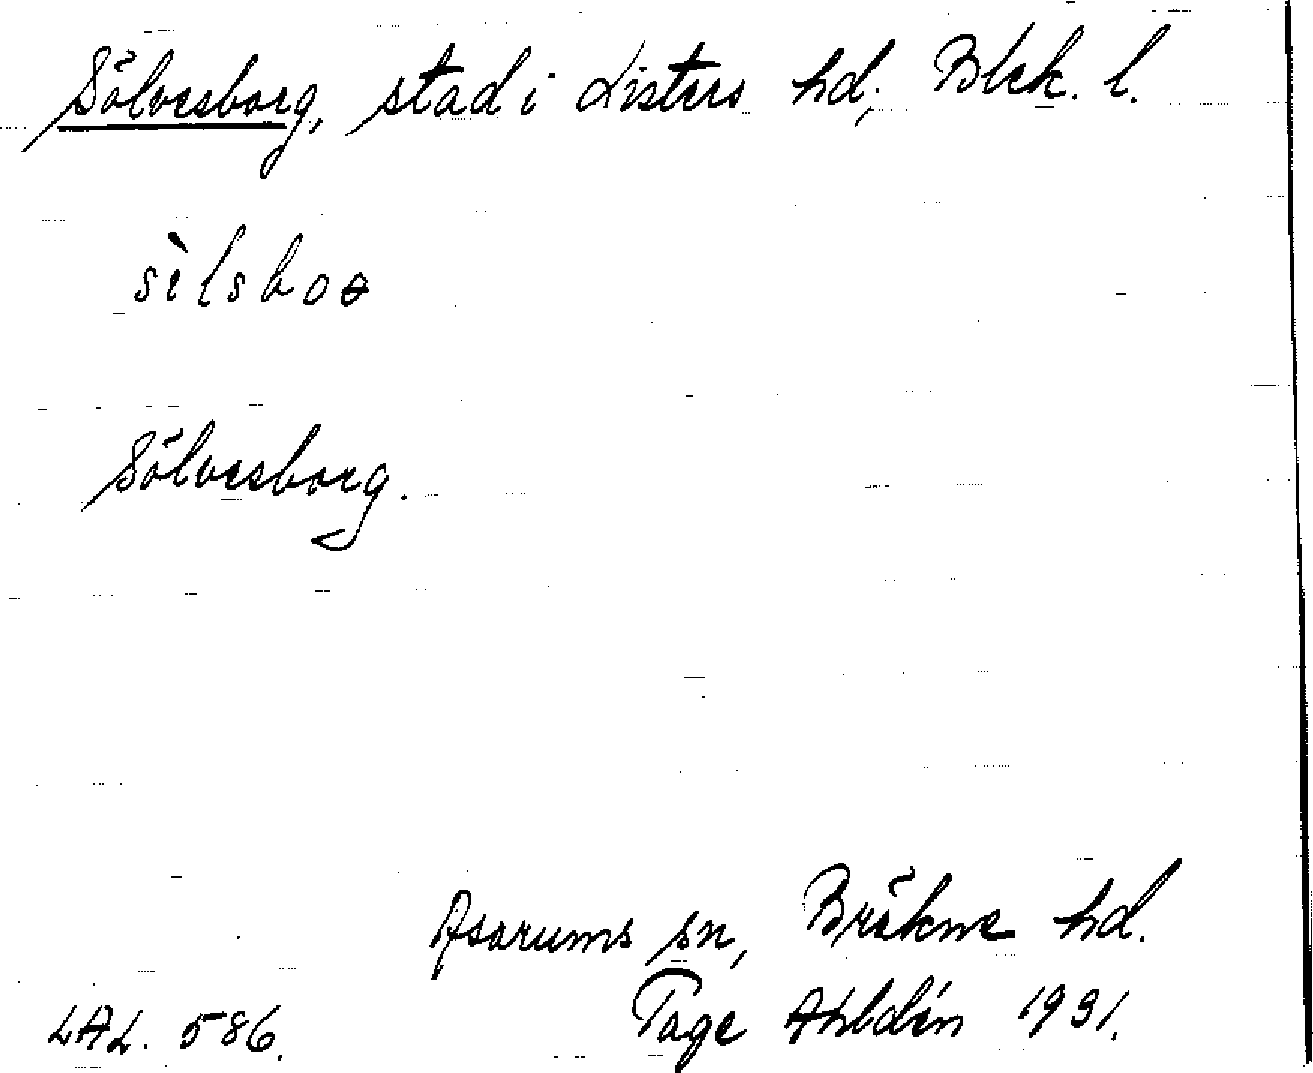 Sölvesborg, stad i Listers hd, Blek. l.
sèlsboɵ
Sölvesborg.
Asarums sn, Bräkne hd.
LAL. 586. Tage Ahldén 1931.